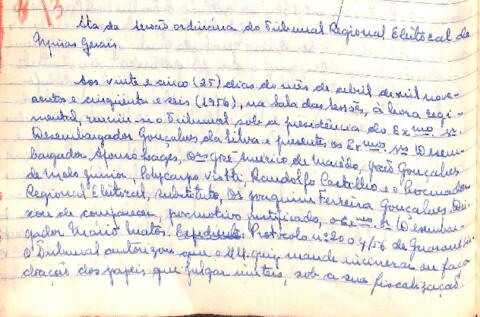 8/3
Ata da sessão ordinária do Tribunal Regional Eleitoral de
Minas Gerais
Aos vinte e cinco (25) dias do mês de abril de mil nove-
centos e cinquenta e seis (1956), na sala das sessões, à hora regi-
mental, reuniu-se o Tribunal sob a presidência do Exmo. Sr.
Desembargador Gonçalves da Silva e presentes os Exmos. Srs. Desem-
bargador Afonso Lages, Drs. José Américo de Macêdo, João Gonçalves
de Melo Junior, Polycarpo Viotti, Randolfo Castilho e o Procurador
Regional Eleitoral, substituto, Dr. Joaquim Ferreira Gonçalves. Dei-
xou de comparecer, por motivo justificado, o Exmo. Sr. Desembar-
gador Mario Matos. Expediente: Protocolo nº 2004/56 de
O Tribunal autorizou que o M.M. Juiz mande incinerar ou faça
doação dos papéis que julgar inúteis, sob a sua fiscalização